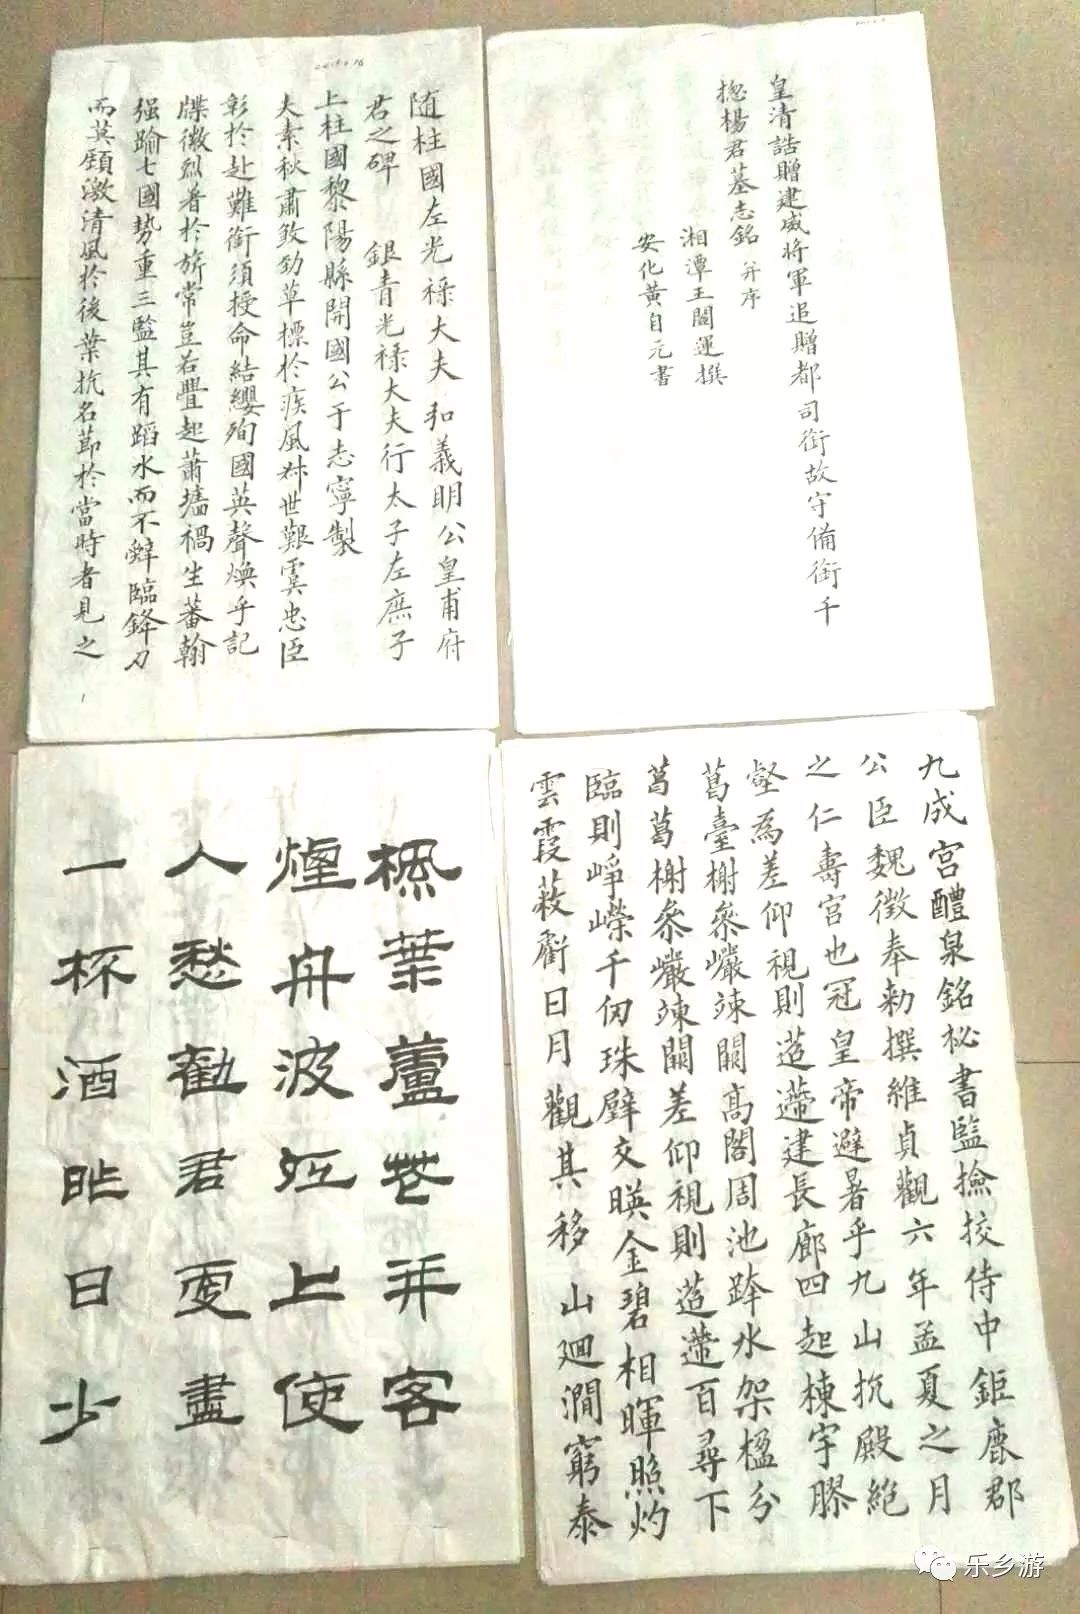 随柱國左光祿大夫弘義明公皇甫府
君之碑 銀青光祿大夫行太子左庶子
上柱國黎陽縣開國公于志寧製
夫素秋肅煞勁草標於疾風叔世艱虞忠臣
彰於赴難銜須授命結纓殉國英聲煥乎記
牒徽烈著於旂常豈若疊起蕭墻禍生蕃翰
强踰七國勢重三監其有蹈水而不辭臨鋒刃
而莫顧激清風於後葉抗名節於當時者見之
1
皇清誥贈建威將軍追贈都司銜故守備銜千
揔楊君墓志銘 并序
湘潭王闓運撰
安化黃自元書
楓葉蘆花并客
煙舟波江上使
人愁勸君更盡
一杯酒昨日少
九成宮醴泉銘秘書監撿挍侍中鉅鹿郡
公臣魏徵奉勅撰維貞觀六年孟夏之月
之仁壽宮也冠皇帝避暑乎九山抗殿絕
壑為差仰視則迢遰建長廊四起棟宇膠
葛臺榭叅巖竦闕高閣周池跨水架楹分
葛葛榭叅巖竦闕差仰視則迢遰百尋下
臨則崢嶸千仞珠璧交暎金碧相暉照灼
雲霞蔽虧日月觀其移山迴澗窮泰
乐乡游